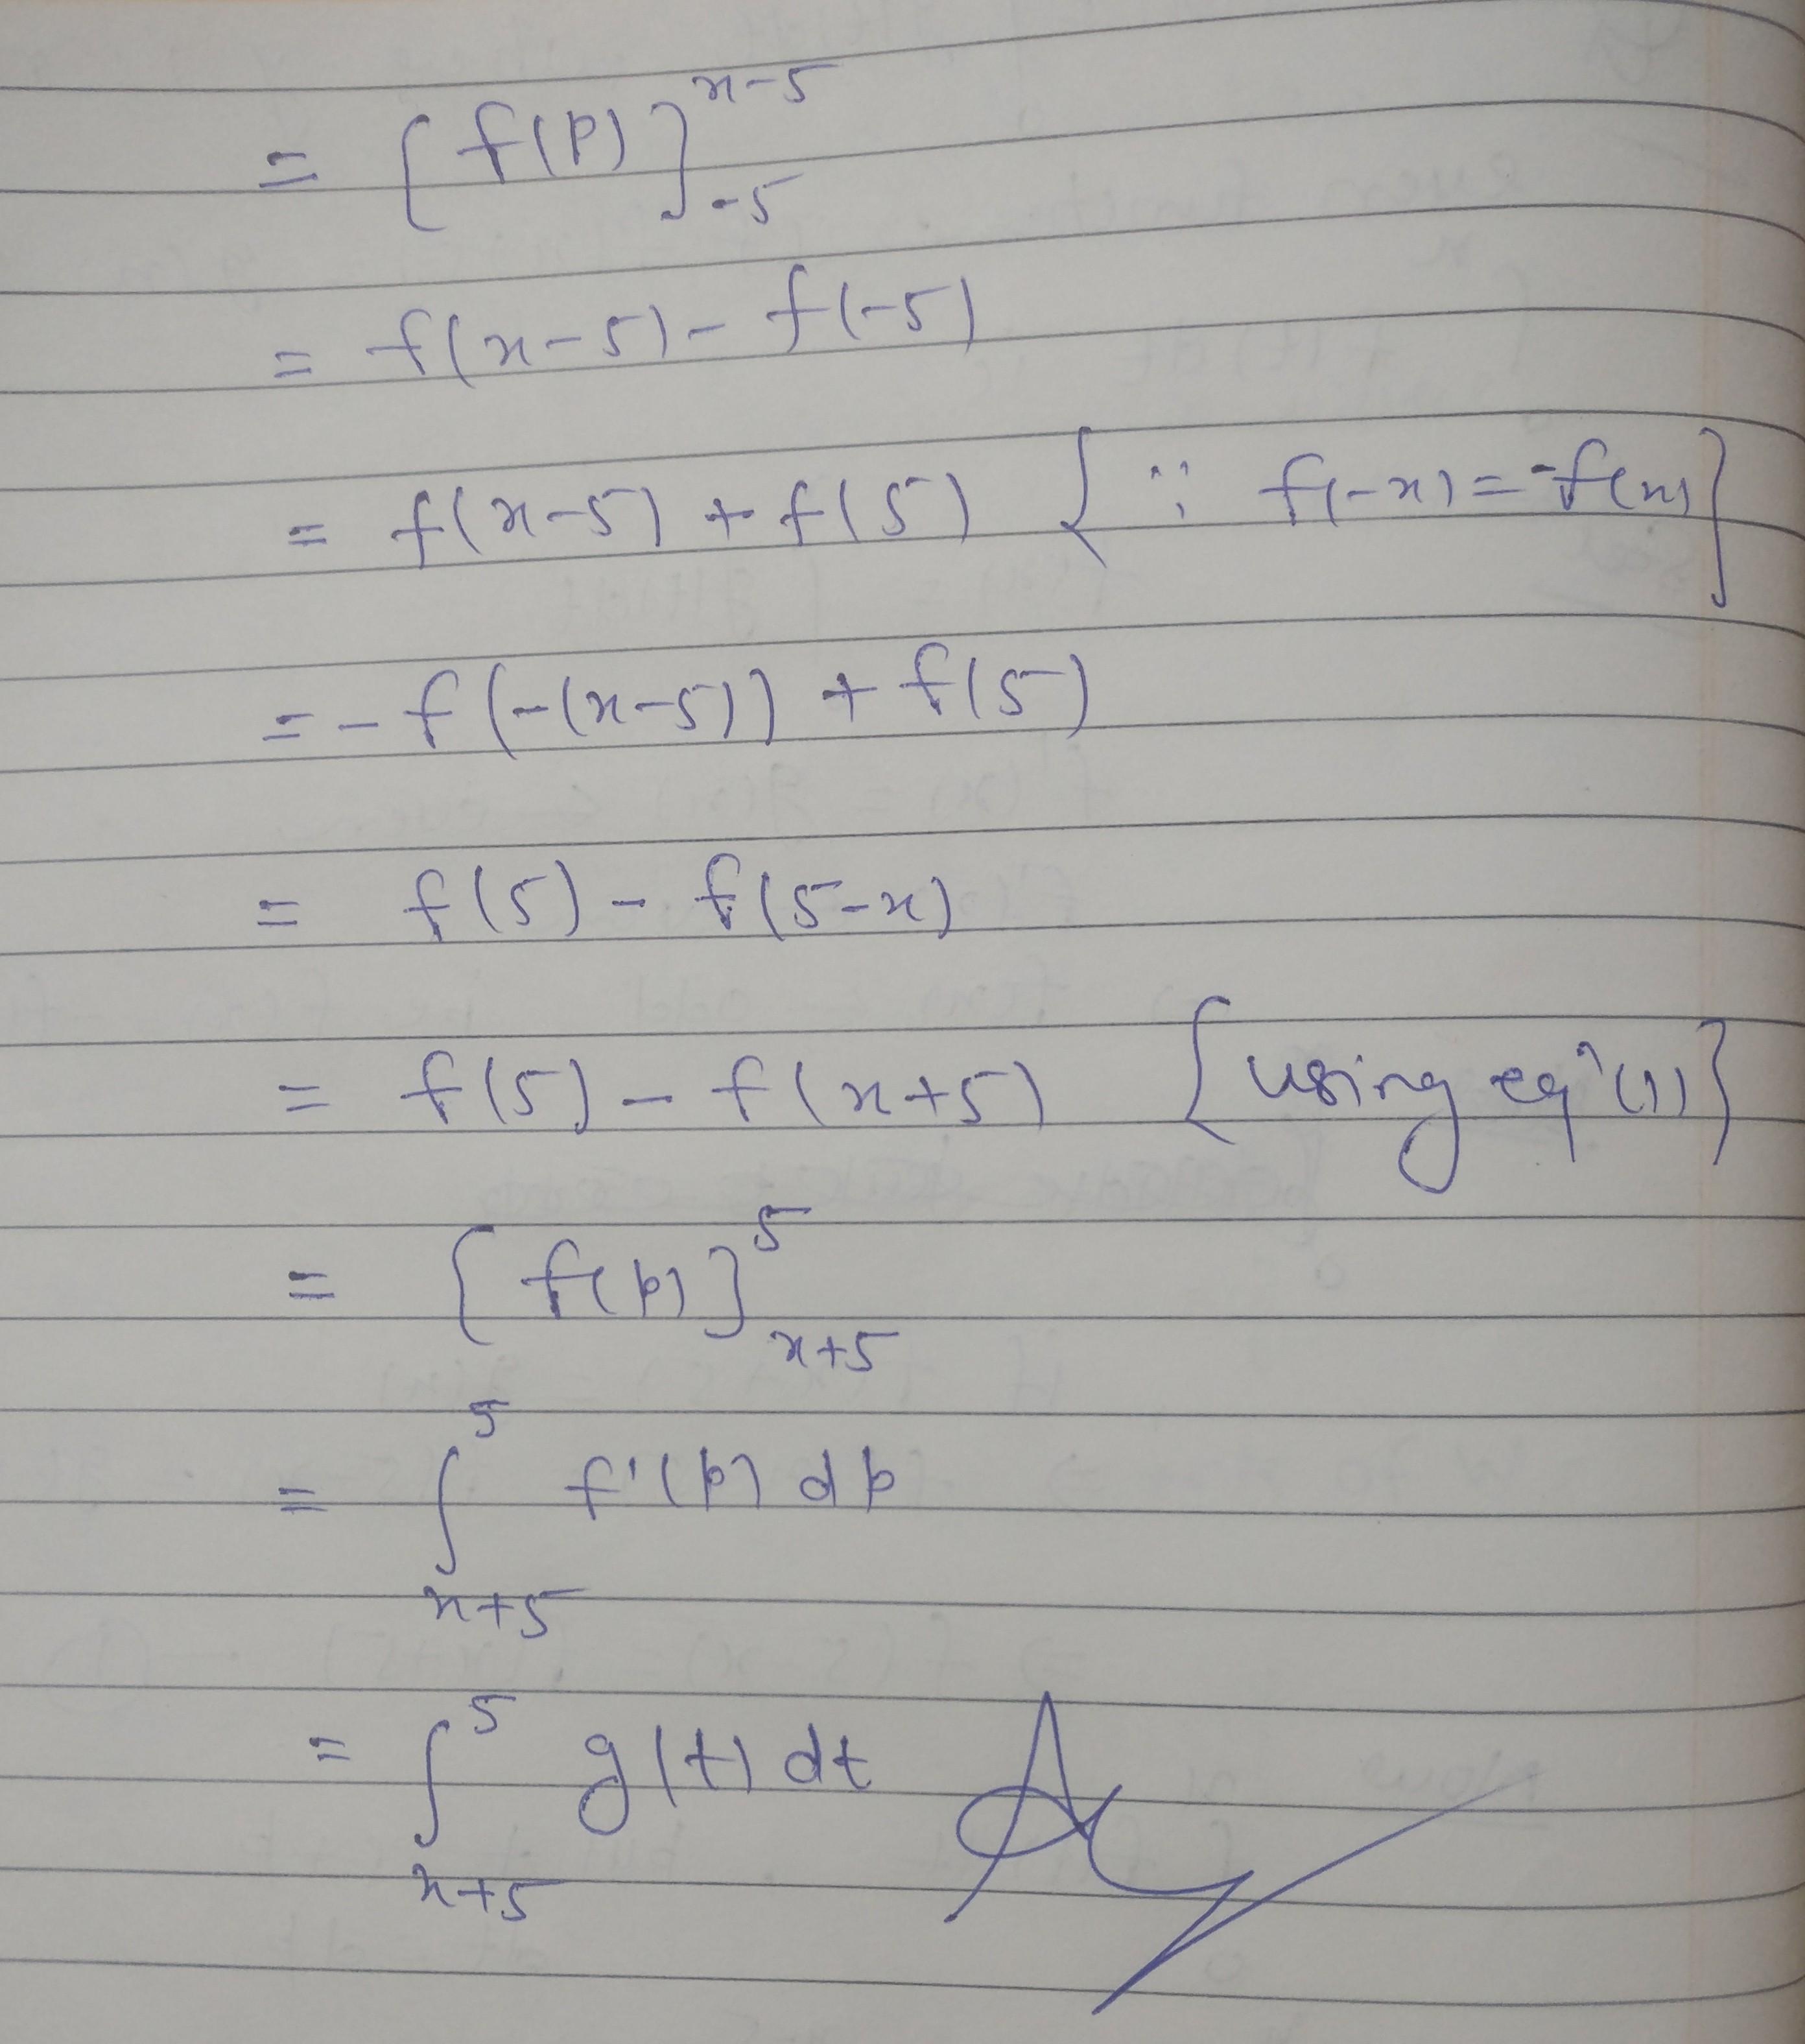 = [f(p)]^{x-5}_{-5}
= f(x-5) - f(-5)
= f(x-5) + f(5) {∵ f(-x) = -f(x)}
= - f(-(x-5)) + f(5)
= f(5) - f(5-x)
= f(5) - f(x+5) {using eqn (1)}
= [f(p)]^{5}_{x+5}
= ∫_{x+5}^{5} f'(p) dp
= ∫_{x+5}^{5} g(t) dt